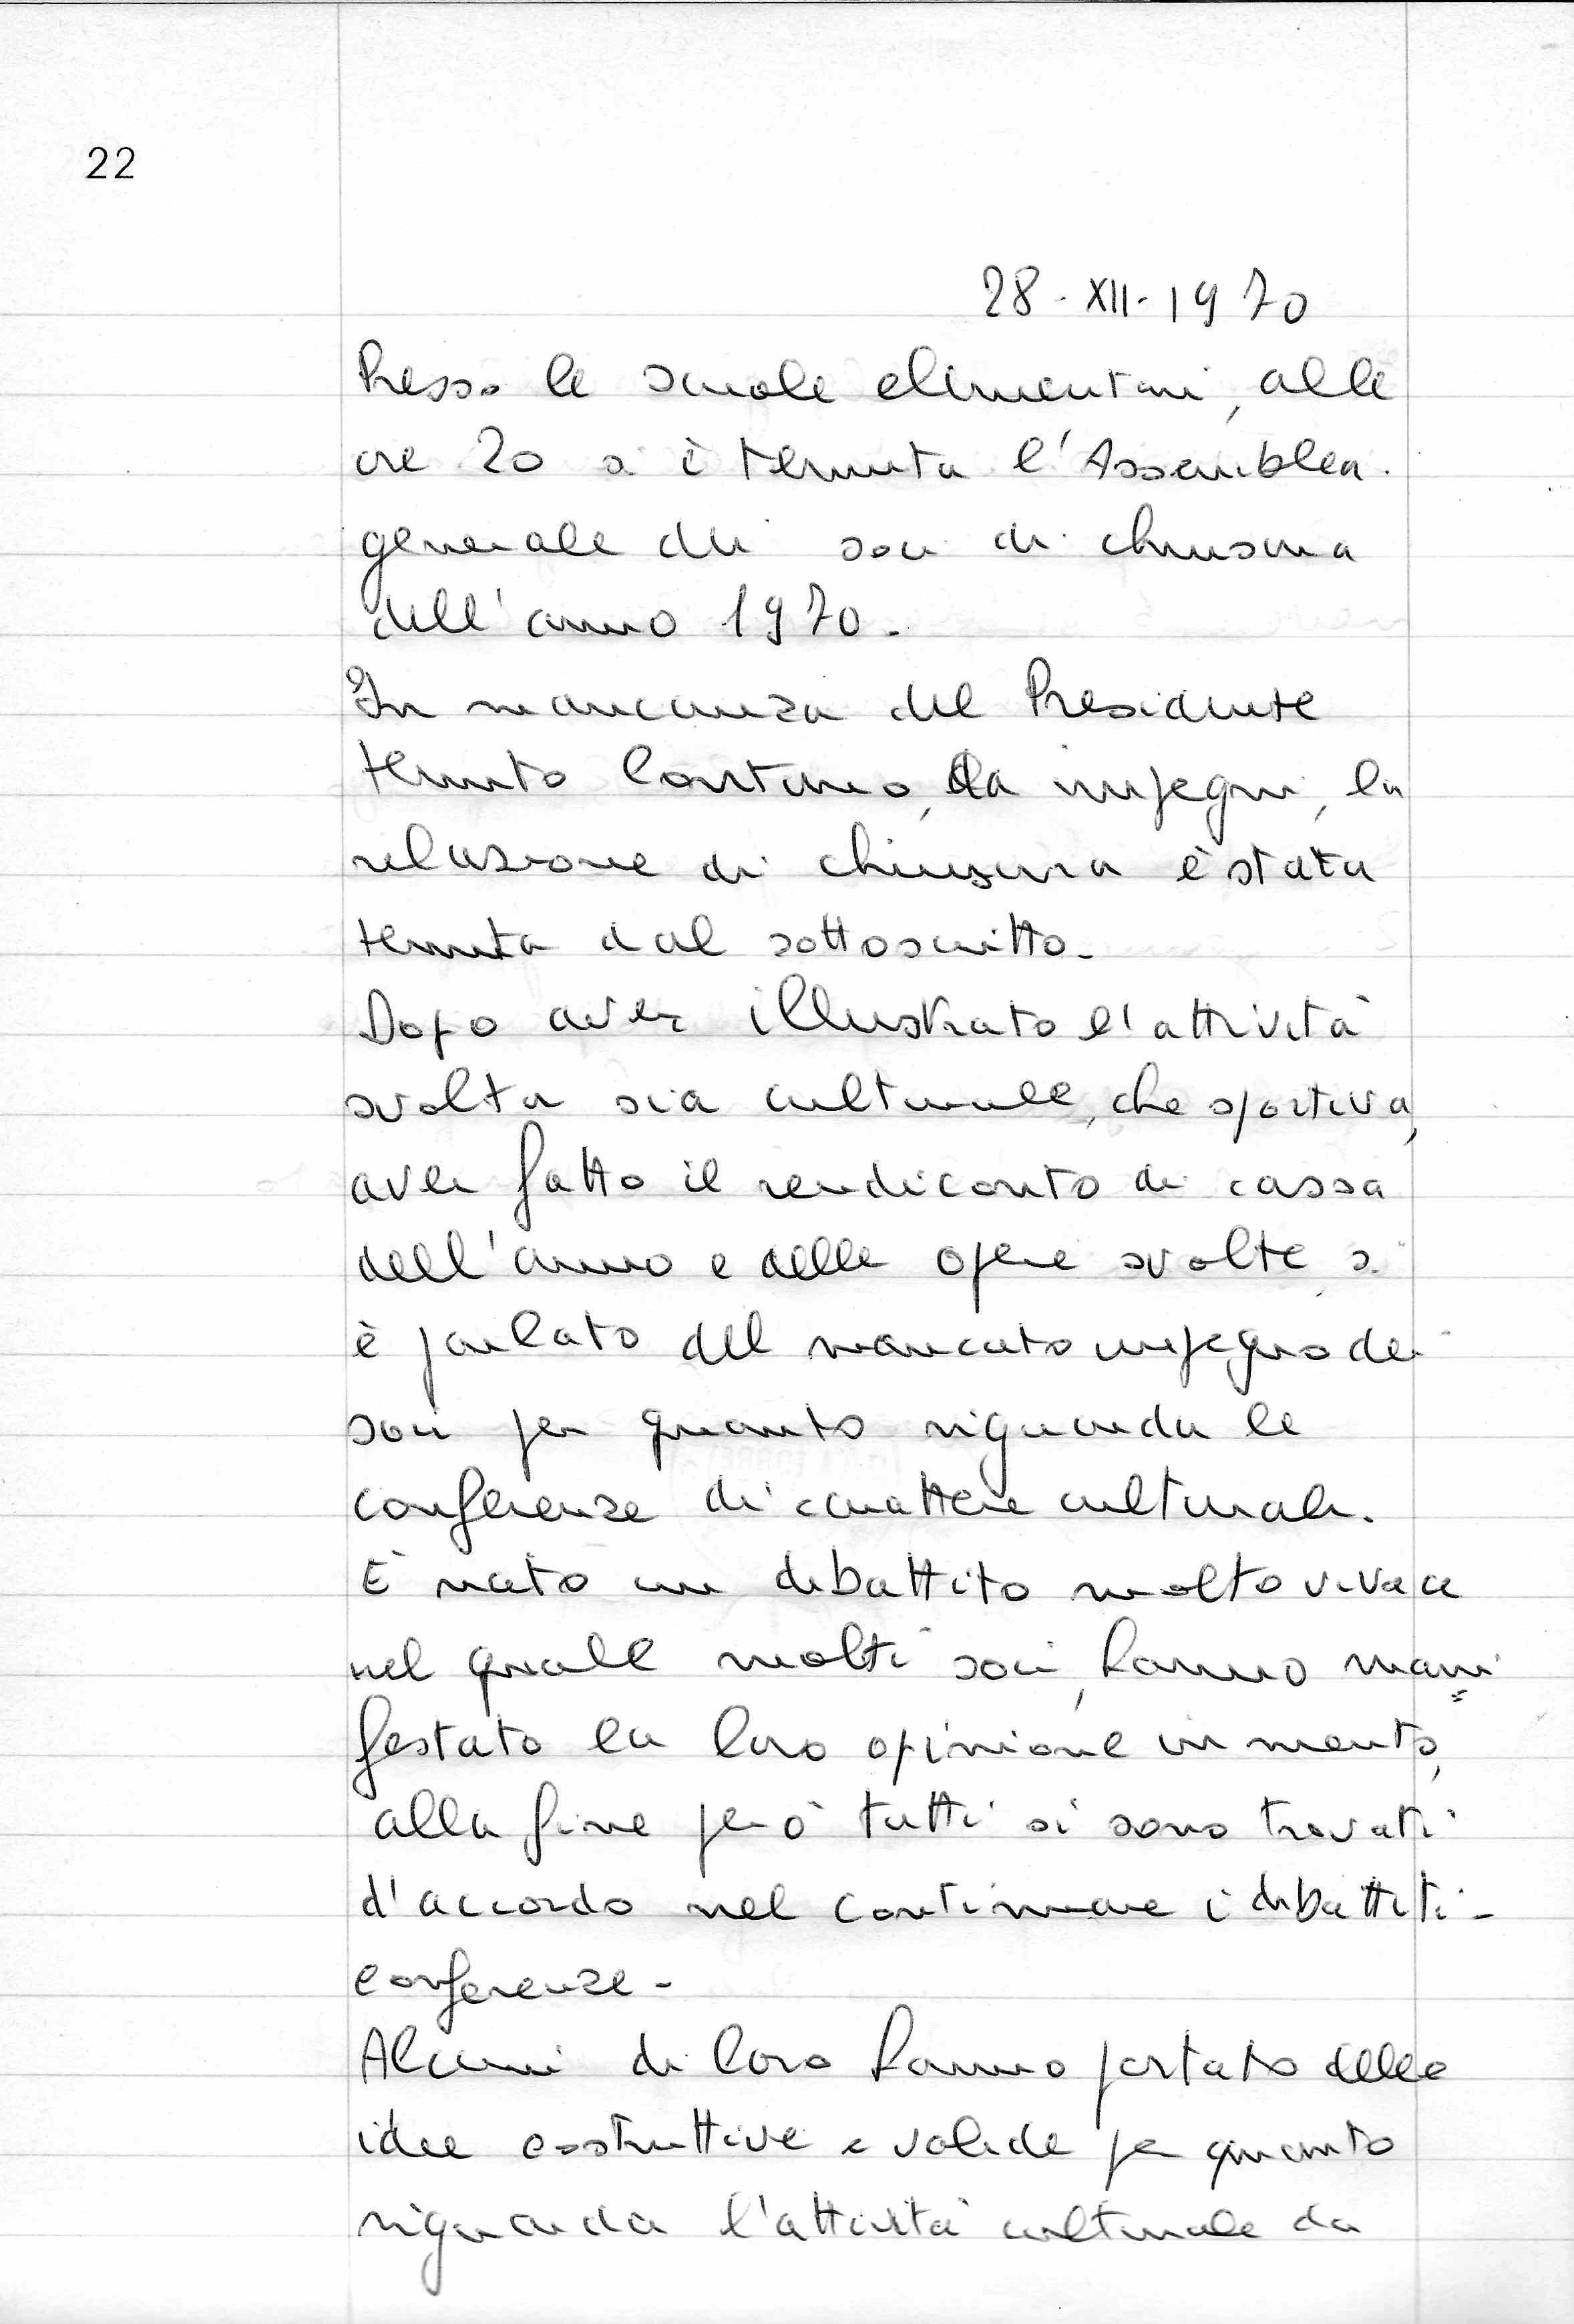 22
28-XII-1970
Presso le scuole elementari, alle
ore 20 si è tenuta l'Assemblea
generale dei soci di chiusura
dell'anno 1970.
In mancanza del Presidente
tenuto lontano, da impegni, la
relazione di chiusura è stata
tenuta dal sottoscritto.
Dopo aver illustrato l'attività
svolta sia culturale, che sportiva,
aver fatto il rendiconto di cassa
dell'anno e delle opere svolte, si
è parlato del mancato impegno dei
soci per quanto riguarda le
conferenze di carattere culturale.
È nato un dibattito molto vivace
nel quale molti soci, hanno mani=
festato la loro opinione in merito,
alla fine però tutti si sono trovati
d'accordo nel continuare i dibattiti-
conferenze-
Alcuni di loro hanno portato delle
idee costruttive e valide per quanto
riguarda l'attività culturale da